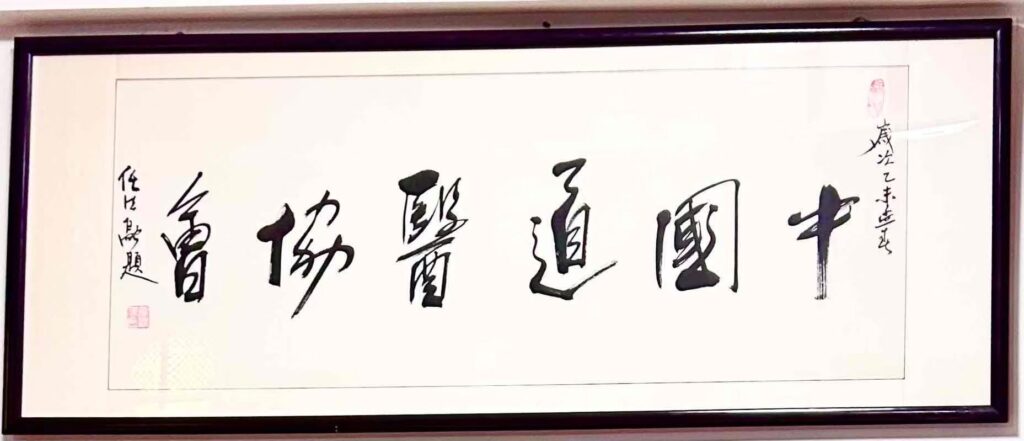 歲次乙未立春
中國道醫協會
任法融題